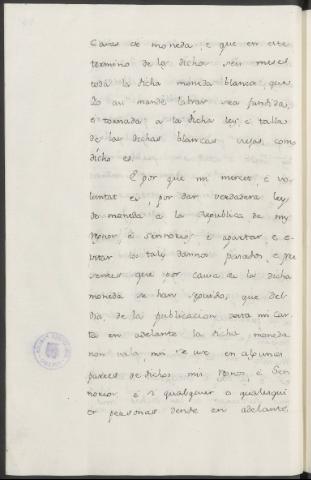 Casas de moneda, e que en este
termino de los dichos seis meses
toda la dicha moneda blanca, que
Yo aui mandé labrar sea fundida,
e tornada a la dicha ley, e talla
de las dichas blancas viejas, como
dicho es.
E por que mi merced, e vo-
luntat es, por dar verdadera ley
de moneda a la republica de my
Reynos, e Sennorios, e apartar, e e-
vitar los tales dannos pasados, e pre
sentes que por causa de la dicha
moneda se han seguido, que del
dia, de la publicacion desta mi car-
ta en adelante la dicha moneda
non vala nin se use en algunas
partes de dichos mis Reynos, e Sen
norios e si qualquier o qualesqui
er personas dende en adelante,